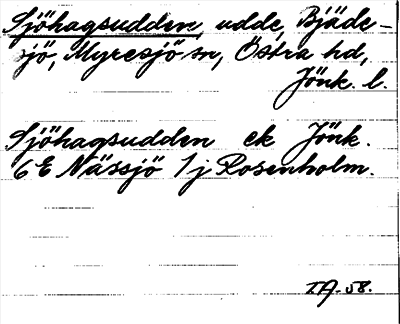 Sjöhagsudden, udde, Bjäde-
sjö, Myresjö sn, Östra hd,
Jönk. l.
Sjöhagsudden ek Jönk.
6 E Nässjö 1 j Rosenholm.
T.A. 58.